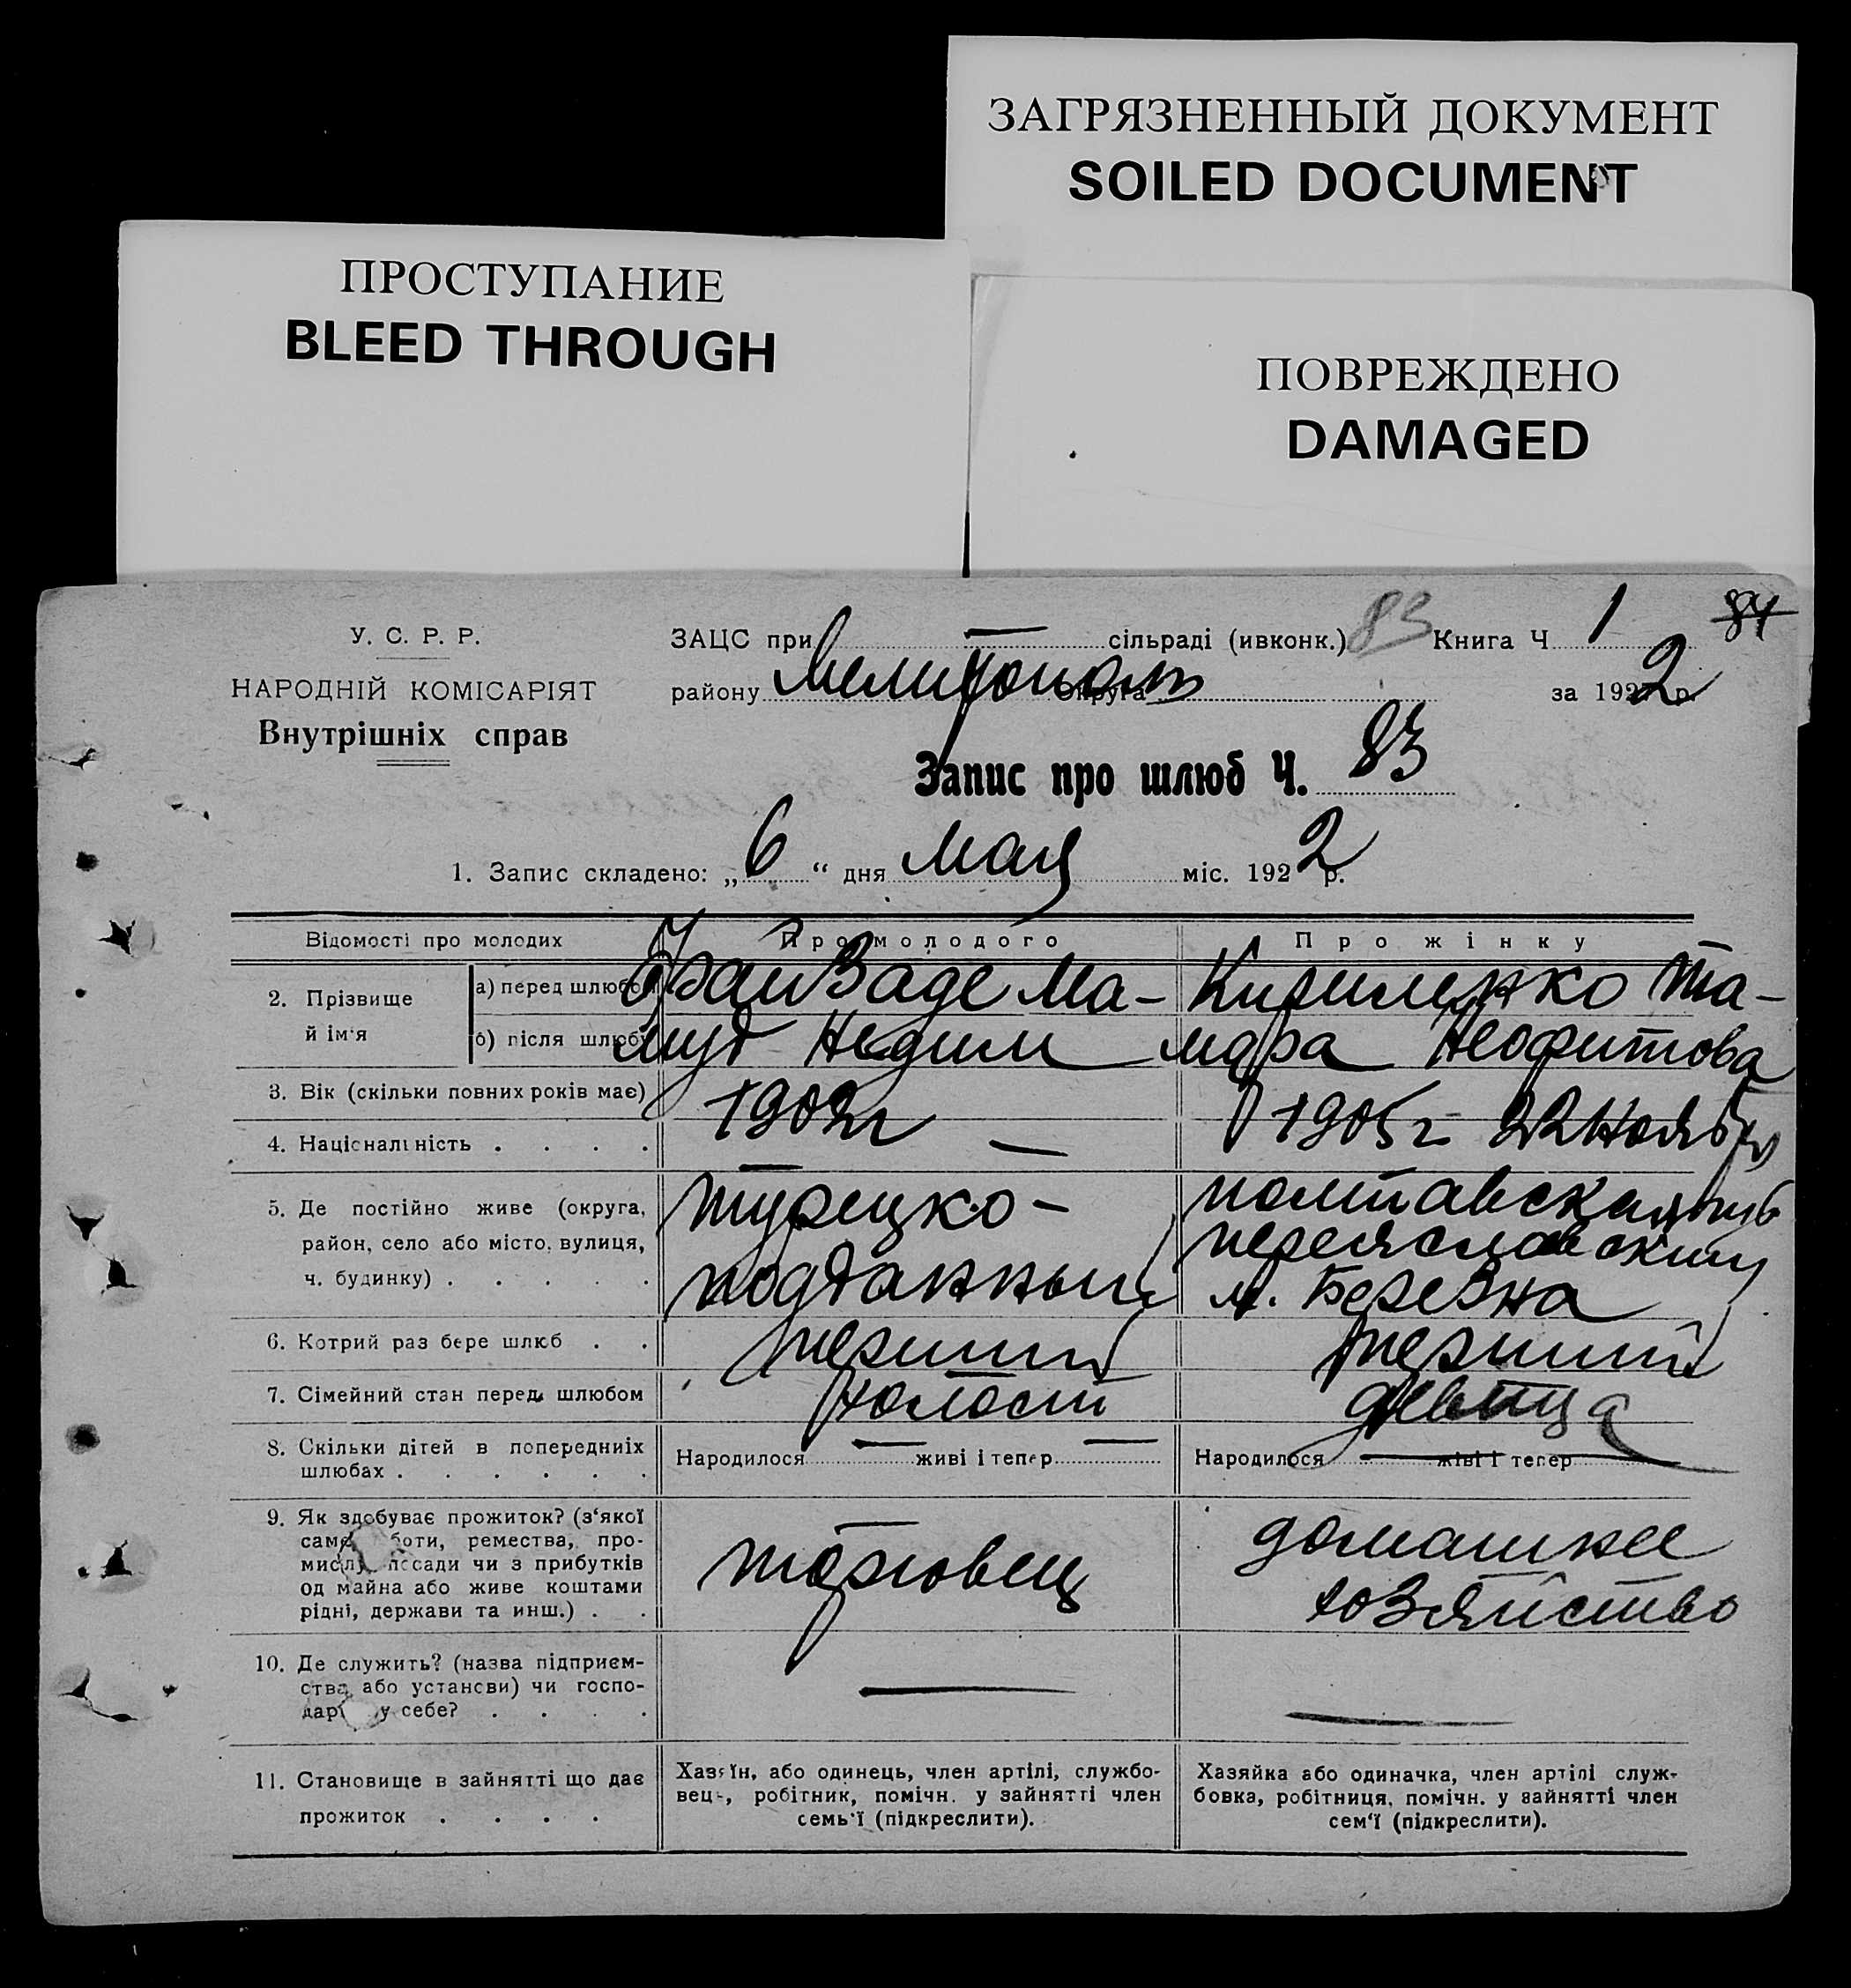 ЗАГРЯЗНЕННЫЙ ДОКУМЕНТ
SOILED DOCUMENT
ПРОСТУПАНИЕ
BLEED THROUGH
ПОВРЕЖДЕНО
DAMAGED
У. С. Р. Р.
НАРОДНІЙ КОМІСАРІЯТ
Внутрішніх справ
ЗАЦС при — сільраді (ивконк.) 83 Книга Ч 1 84
району Мелитополь Округа за 1922 р.
Запис про шлюб Ч. 83
1. Запис складено: „ 6 “ дня мая міс. 1922 р.
Відомості про молодих
Про молодого
Про жінку
2. Прізвище й ім'я
а) перед шлюбом
б) після шлюбу
Ма-
мут Недим
Кириленко Та-
мара Неофитова
3. Вік (скільки повних років має)
1902г
1905г 22 Ноября
4. Національність . . . . —
5. Де постійно живе (округа,
район, село або місто, вулиця,
ч. будинку) . . . . .
турецко-
подданный
полтавская губ
переяславский
м. Березна
6. Котрий раз бере шлюб . .
первый
первый
7. Сімейний стан перед шлюбом
холост
девица
8. Скільки дітей в попередниіх
шлюбах . . . . . .
Народилося — живі і тепер —
Народилося — живі і тепер
9. Як здобуває прожиток? (з'якої
саме роботи, ремества, про-
мислу, посади чи з прибутків
од майна або живе коштами
рідні, держави та инш.) . .
торговец
домашнее
хозяйство
10. Де служить? (назва підприєм-
ства або установи) чи госпо-
дарює у себе? . . . .
—
—
11. Становище в зайнятті що дає
прожиток . . . .
Хазяїн, або одинець, член артілі, службо-
вець, робітник, помічн. у зайнятті член
семь'ї (підкреслити).
Хазяйка або одиначка, член артілі служ-
бовка, робітниця, помічн. у зайнятті член
сем'ї (підкреслити).